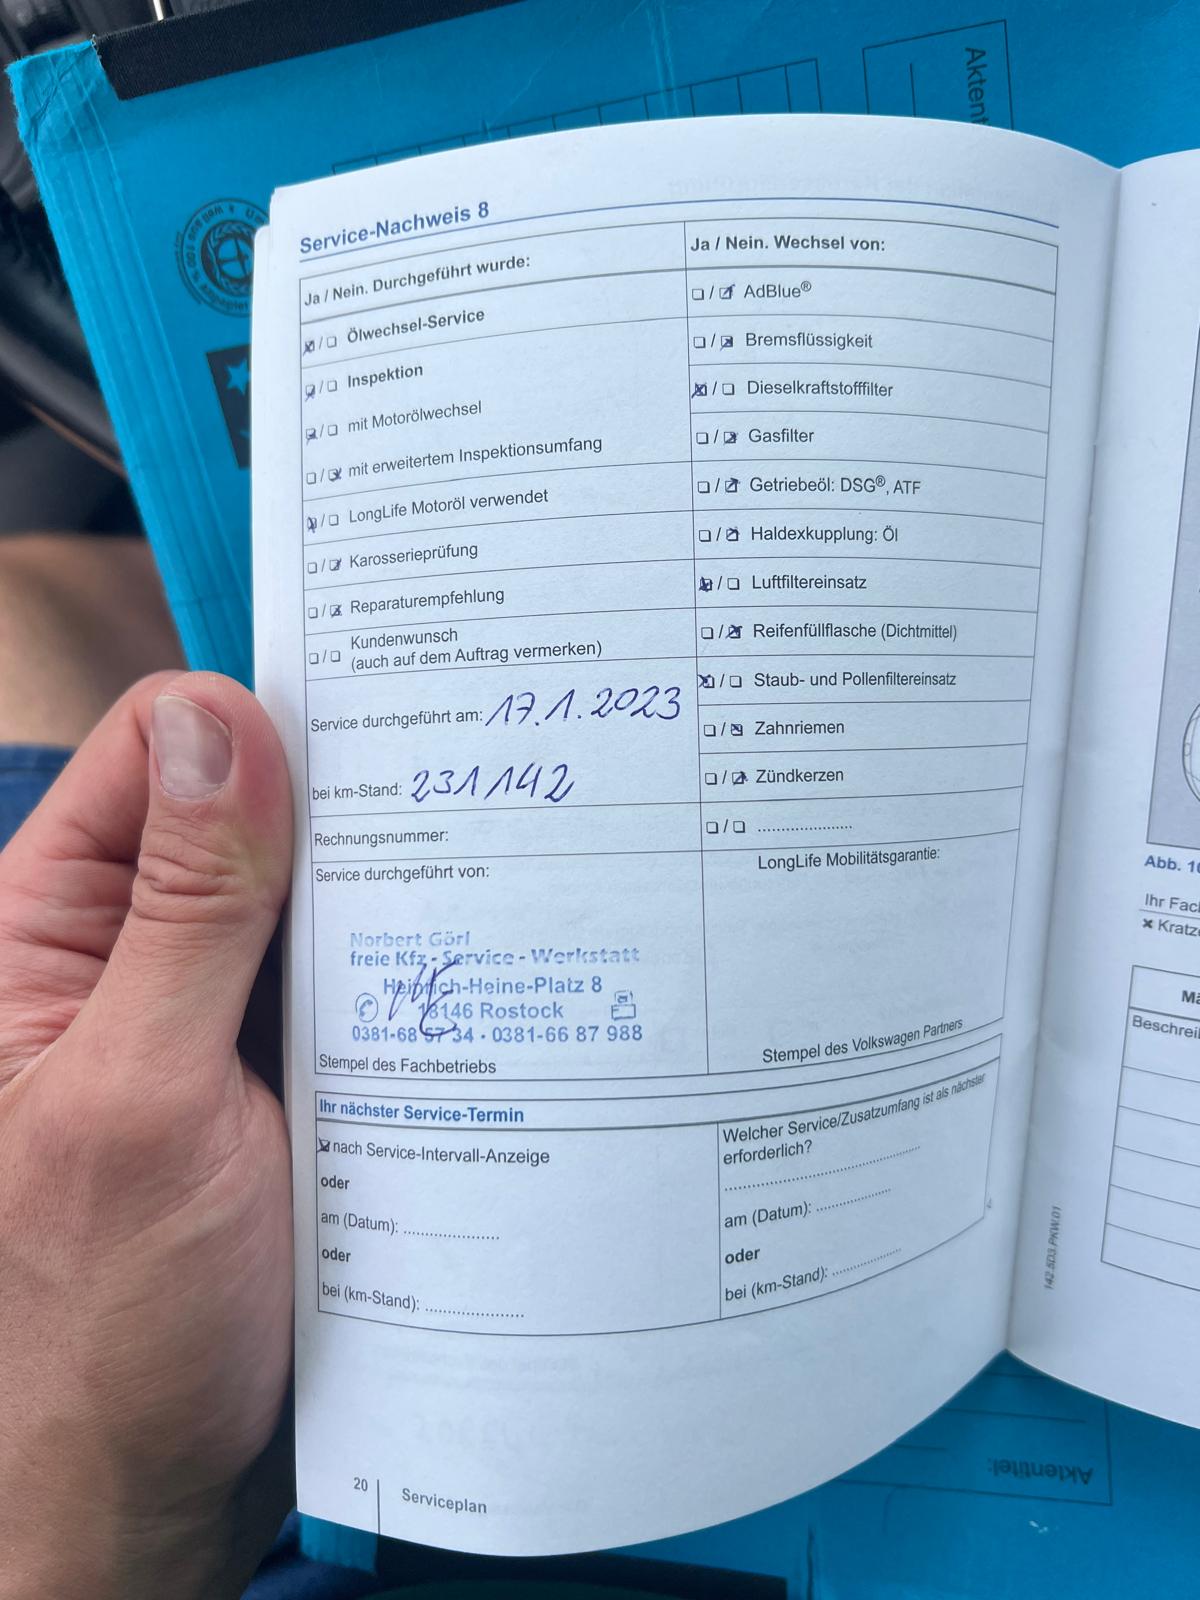 Aktent
Service-Nachweis 8
Ja / Nein. Durchgeführt wurde:
☒ / ☐ Ölwechsel-Service
☒ / ☐ Inspektion
☒ / ☐ mit Motorölwechsel
☐ / ☒ mit erweitertem Inspektionsumfang
☒ / ☐ LongLife Motoröl verwendet
☐ / ☒ Karosserieprüfung
☐ / ☒ Reparaturempfehlung
☐ / ☐ Kundenwunsch
(auch auf dem Auftrag vermerken)
Service durchgeführt am: 17.1.2023
bei km-Stand: 231142
Rechnungsnummer:
Service durchgeführt von:
Norbert Görl
freie Kfz - Service - Werkstatt
Heinrich-Heine-Platz 8
18146 Rostock
0381-68 67 34 · 0381-66 87 988
Stempel des Fachbetriebs
Ja / Nein. Wechsel von:
☐ / ☒ AdBlue®
☐ / ☒ Bremsflüssigkeit
☒ / ☐ Dieselkraftstofffilter
☐ / ☒ Gasfilter
☐ / ☒ Getriebeöl: DSG®, ATF
☐ / ☒ Haldexkupplung: Öl
☒ / ☐ Luftfiltereinsatz
☐ / ☒ Reifenfüllflasche (Dichtmittel)
☒ / ☐ Staub- und Pollenfiltereinsatz
☐ / ☒ Zahnriemen
☐ / ☒ Zündkerzen
☐ / ☐ ......................
LongLife Mobilitätsgarantie:
Stempel des Volkswagen Partners
Ihr nächster Service-Termin
☒ nach Service-Intervall-Anzeige
oder
am (Datum): ......................
oder
bei (km-Stand): ......................
Welcher Service/Zusatzumfang ist als nächster
erforderlich?
......................
am (Datum): ................
oder
bei (km-Stand): ................
142.5D3.PKW.01
20
Serviceplan
Abb. 1
Ihr Fac
✖ Kratz
Mä
Beschrei
Aktentitel: